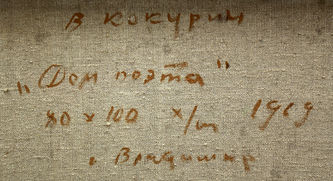 В КОКУРИН
"Дом поэта"
80 x 100 х/м 1989
г. Владимир